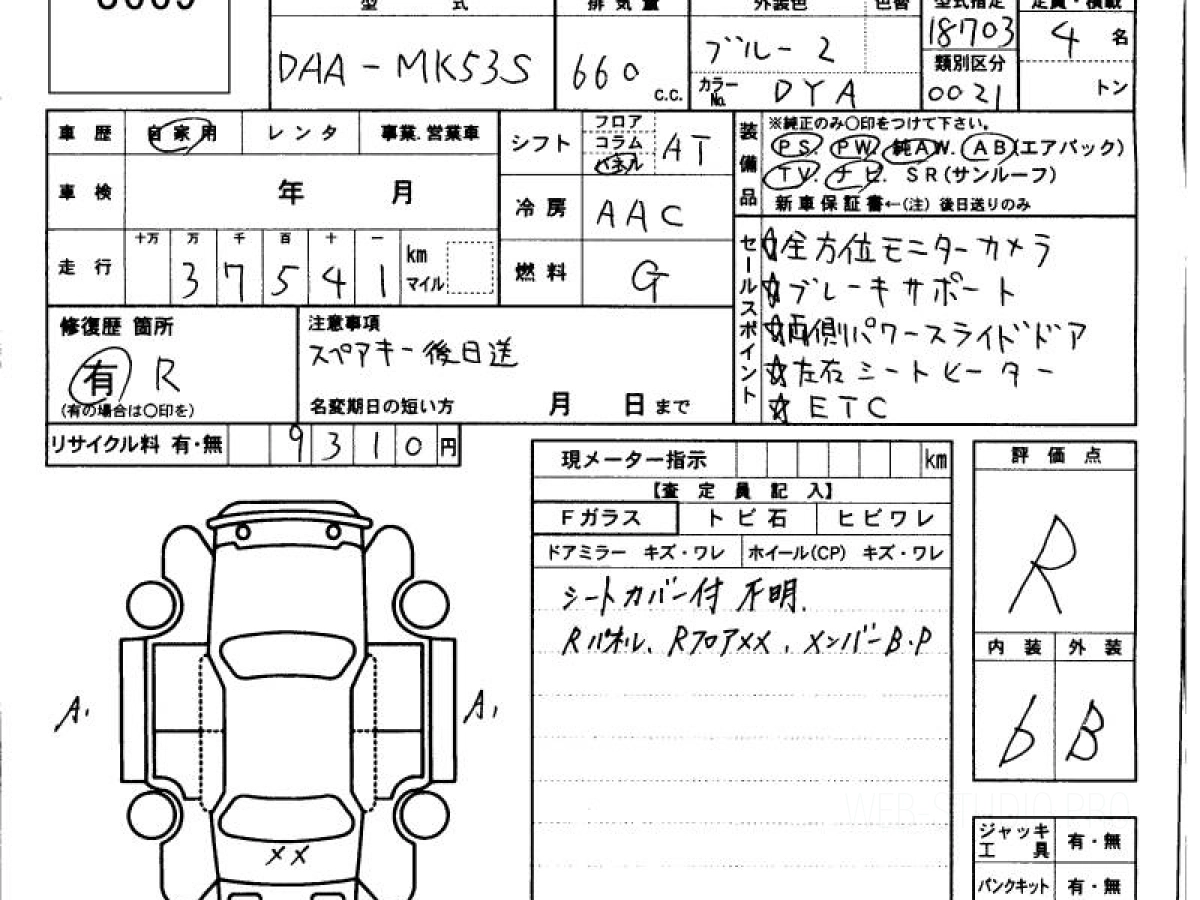 型 式
排 気 量
外装色 色替
型式指定
定員・積載
DAA - MK53S
660 c.c.
ブルー 2
カラーNo. DYA
18703
類別区分
0021
4 名
トン
車 歴 自 家 用 レ ン タ 事業.営業車
シフト フロア コラム パネル AT
装備品 ※純正のみ〇印をつけて下さい。
PS. PW. 純AW. AB(エアバック)
TV. ナビ. SR(サンルーフ)
新車保証書←(注) 後日送りのみ
車 検 年 月
冷 房 AAC
走 行 十万 万 千 百 十 一
3 7 5 4 1 km マイル
燃 料 G
セールスポイント
☆全方位モニターカメラ
☆ブレーキサポート
☆両側パワースライドドア
☆左右シートヒーター
☆ETC
修復歴 箇所
有 R
(有の場合は〇印を)
注意事項
スペアキー後日送
名変期日の短い方 月 日 まで
リサイクル料 有・無 9 3 1 0 円
現メーター指示 km
【査 定 員 記 入】
Fガラス ト ビ 石 ヒ ビ ワ レ
ドアミラー キズ・ワレ ホイール(CP) キズ・ワレ
シートカバー付 不明.
Rパネル、RフロアXX、メンバーB・P
評 価 点
R
内 装 外 装
b B
A1
A1
XX
ジャッキ 工 具 有・無
パンクキット 有・無
WEB STUDIO PRO